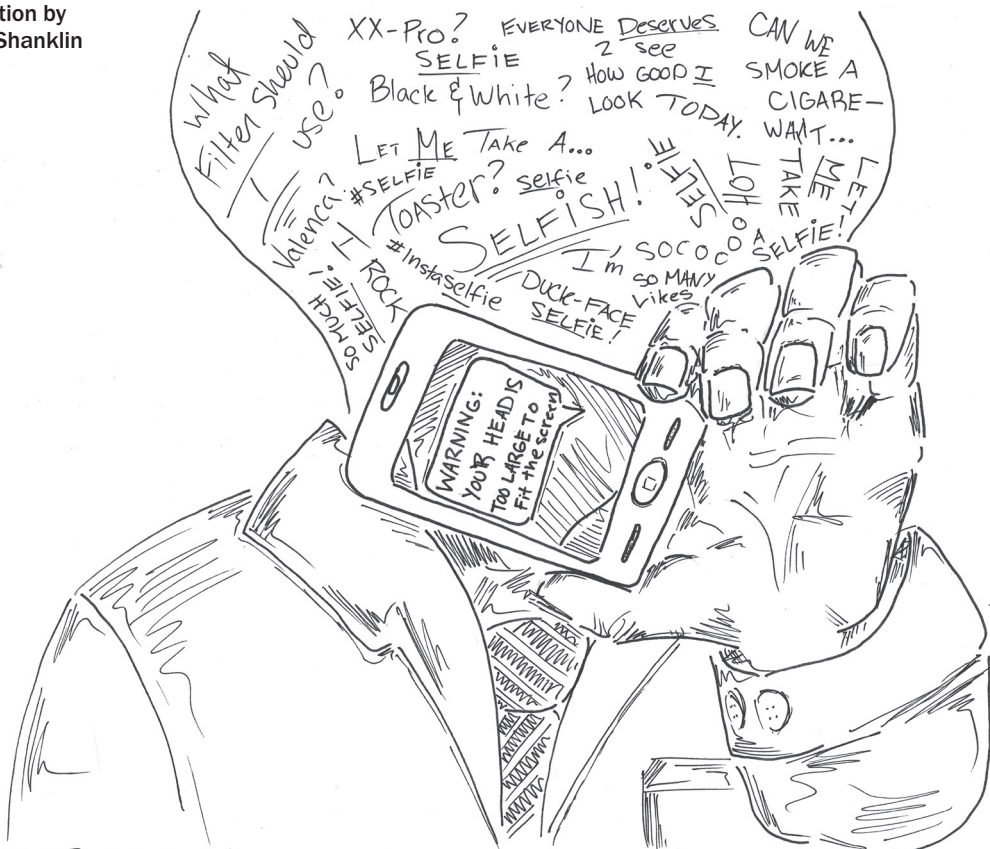 tion by
Shanklin
What
Filter Should
I use?
XX-Pro?
SELFIE
Black & White?
EVERYONE Deserves
2 see
HOW GOOD I
LOOK TODAY.
CAN WE
SMOKE A
CIGARE-
WAIT...
LET ME TAKE A...
#SELFIE
Toaster?
selfie
SELFISH!
SELFIE
LET
ME
TAKE
A
SELFIE!
Valenca?
I ROCK
#InstaSelfie
I'm
SO MANY
Likes
DUCK-FACE
SELFIE!
SO MUCH
SELFIE!
WARNING:
YOUR HEAD IS
TOO LARGE TO
Fit the screen